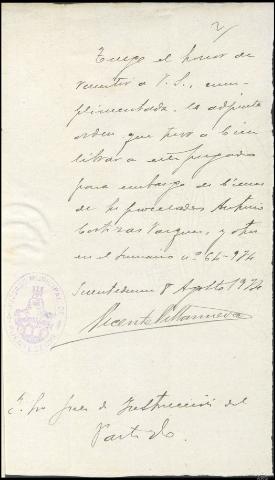 2/
Tengo el honor de
remitir a V. S., cum-
plimentada, la adjunta
orden, que tuvo a bien
librar a este juzgado
para embargo de bienes
de los procesados Antonio
Vazquez, y otros
en el sumario nº 64-924
8 Agosto 1924
Vicente Villanueva
Juez de Instrucción del
Partido.